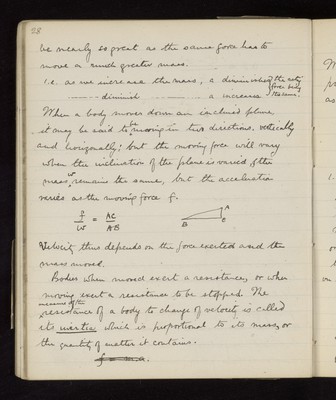 28
be nearly so great as the same force has to
move a much greater mass.
i.e. as we increase the mass, a diminishes the acting
force being
the same.
——— diminish ——— a increases
When a body moves down an inclined plane
it may be said to be moving in two directions, vertically
and horizontally; but the moving force will vary
when the inclination of the plane is varied, & the
mass, w, remains the same, but the acceleration
varies as the moving force f.
f/W = AC/AB
A
B C
Velocity thus depends on the force exerted and the
mass moved.
Bodies when moved exert a resistance, or when
moving exert a resistance to be stopped. The
measure of the
resistance of a body to change of velocity is called
its inertia which is proportional to its mass, or
the quantity of matter it contains.
M
as
1.
on